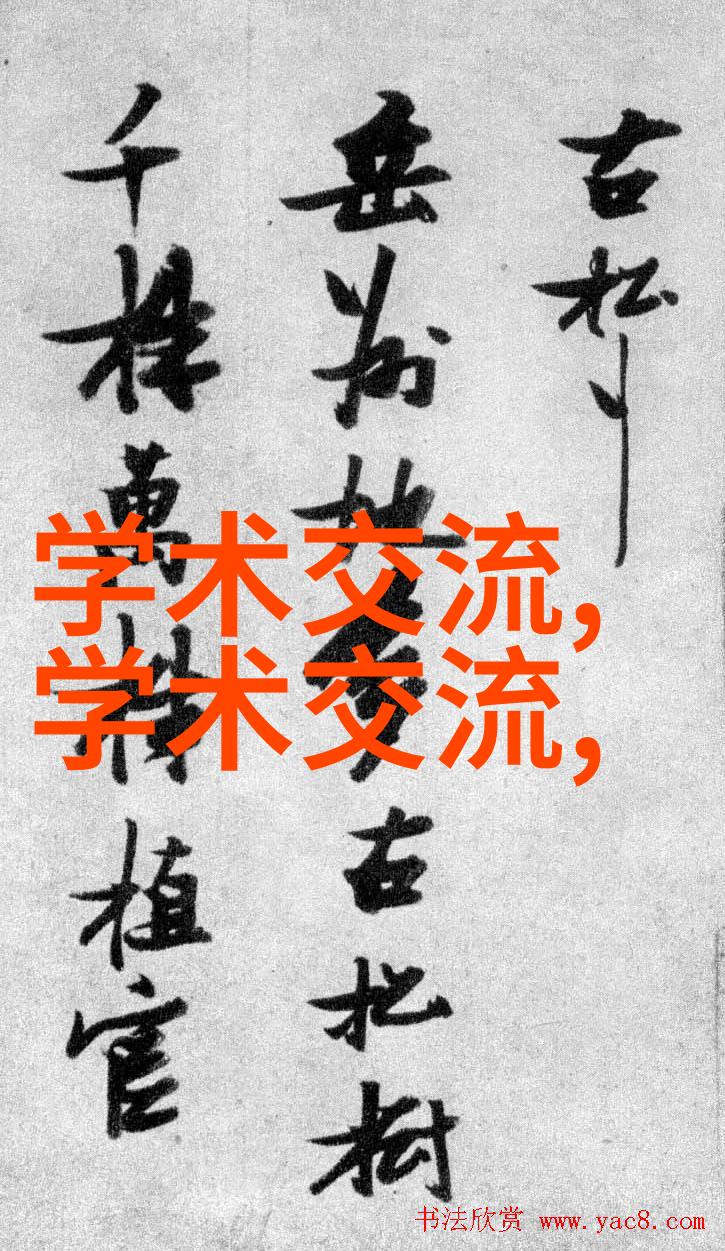 古松
岳州地多古松樹
千株萬株植官
学术交流,
学术交流,
书法欣赏 www.yac8.com